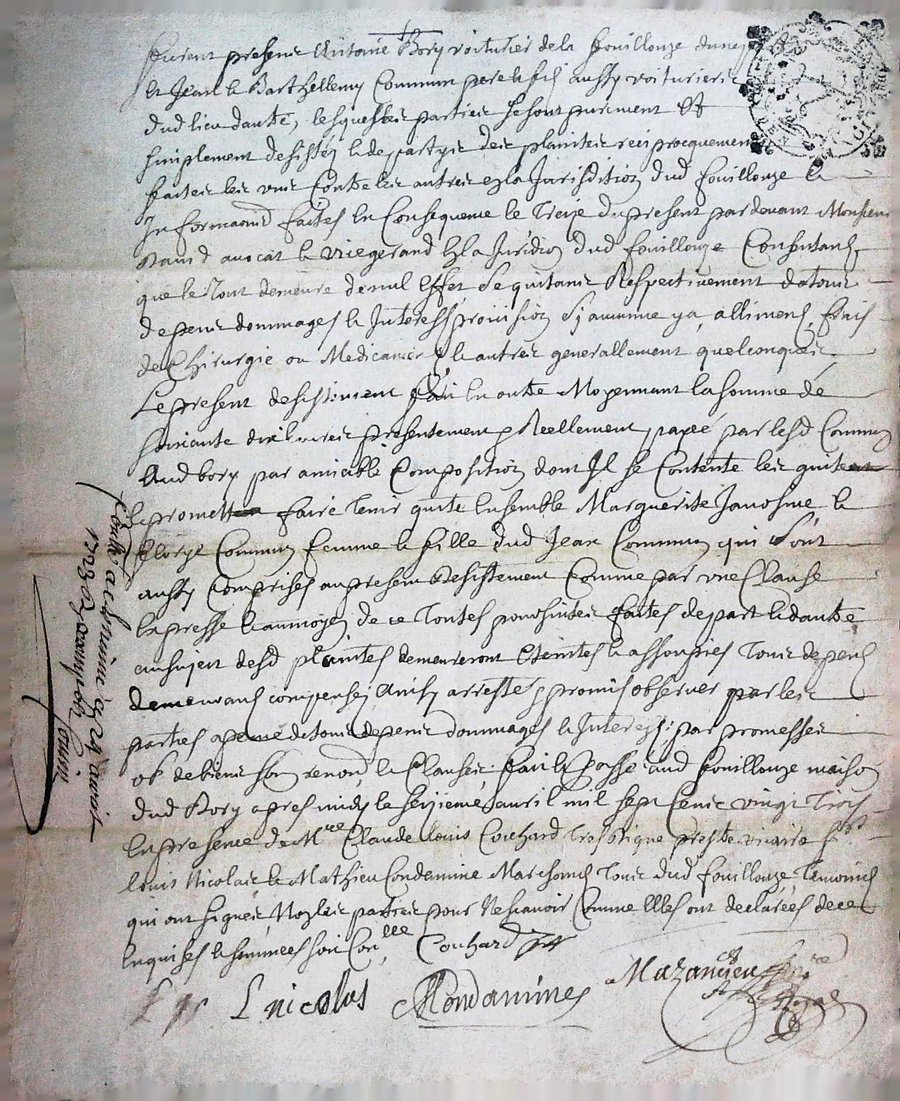 Furent presens Antoine Bory voiturier de la fouillouze d'une
Et Jean & Barthellemy Commun pere & fils aussy voituriers
dud lieu dautre, lesquelles parties se sont purement Et
simplement desistés & departys des plaintes reciproquement
faites les uns Contre les autres en la Jurisdition dud fouillouze &
Informaons faites En Consequence le Treize du present pardevant Monsieur
avocat & viegerand En la Juridion dud fouillouze Consentans
que le Tout demeure de nul Effet Se quitans Respectivement de tous
depens dommages & Interests provision Sy aucune y a, allimens frais
de Chirurgie ou Medicamens & autres generallement quelconques
Le present desistement fait En outre Moyennant la somme de
soixante dix livres presentement & Reellement payée par lesd Commun
Aud bory par amiable Composition dont Il se Contente les quite
& promet faire Tenir quite Ensemble Marguerite &
Commun femme & fille dud Jean Commun qui Sont
aussy Comprises au present Desistement Comme par une Clause
Expresse & au moyen de ce Toutes poursuites faites de part & dautre
au sujet desd plaintes demeureront Eteintes & assoupies Tous depens
demeurans compensés Ainsy arresté & promis observer par les
parties a peine de tous depens dommages & Interests par promesses
ob de biens Son renon & Clauses: fait & Passé aud fouillouze maison
dud Bory apres midy le seizieme avril mil sept Cent vingt Trois
En presence de Mre Claude Louis Couchard prestre vicaire Sr
Louis Nicolas & Mathieu Condamine Marchand Tous dud fouillouze Temoins
qui ont signé, Non les parties pour ne scavoir Comme Elles ont declarées de ce
Enquises & sommées soit Conllee Couchard
L nicolas MCondamine Mazancieu
Royal
Conllé a 24 avril
1723 R